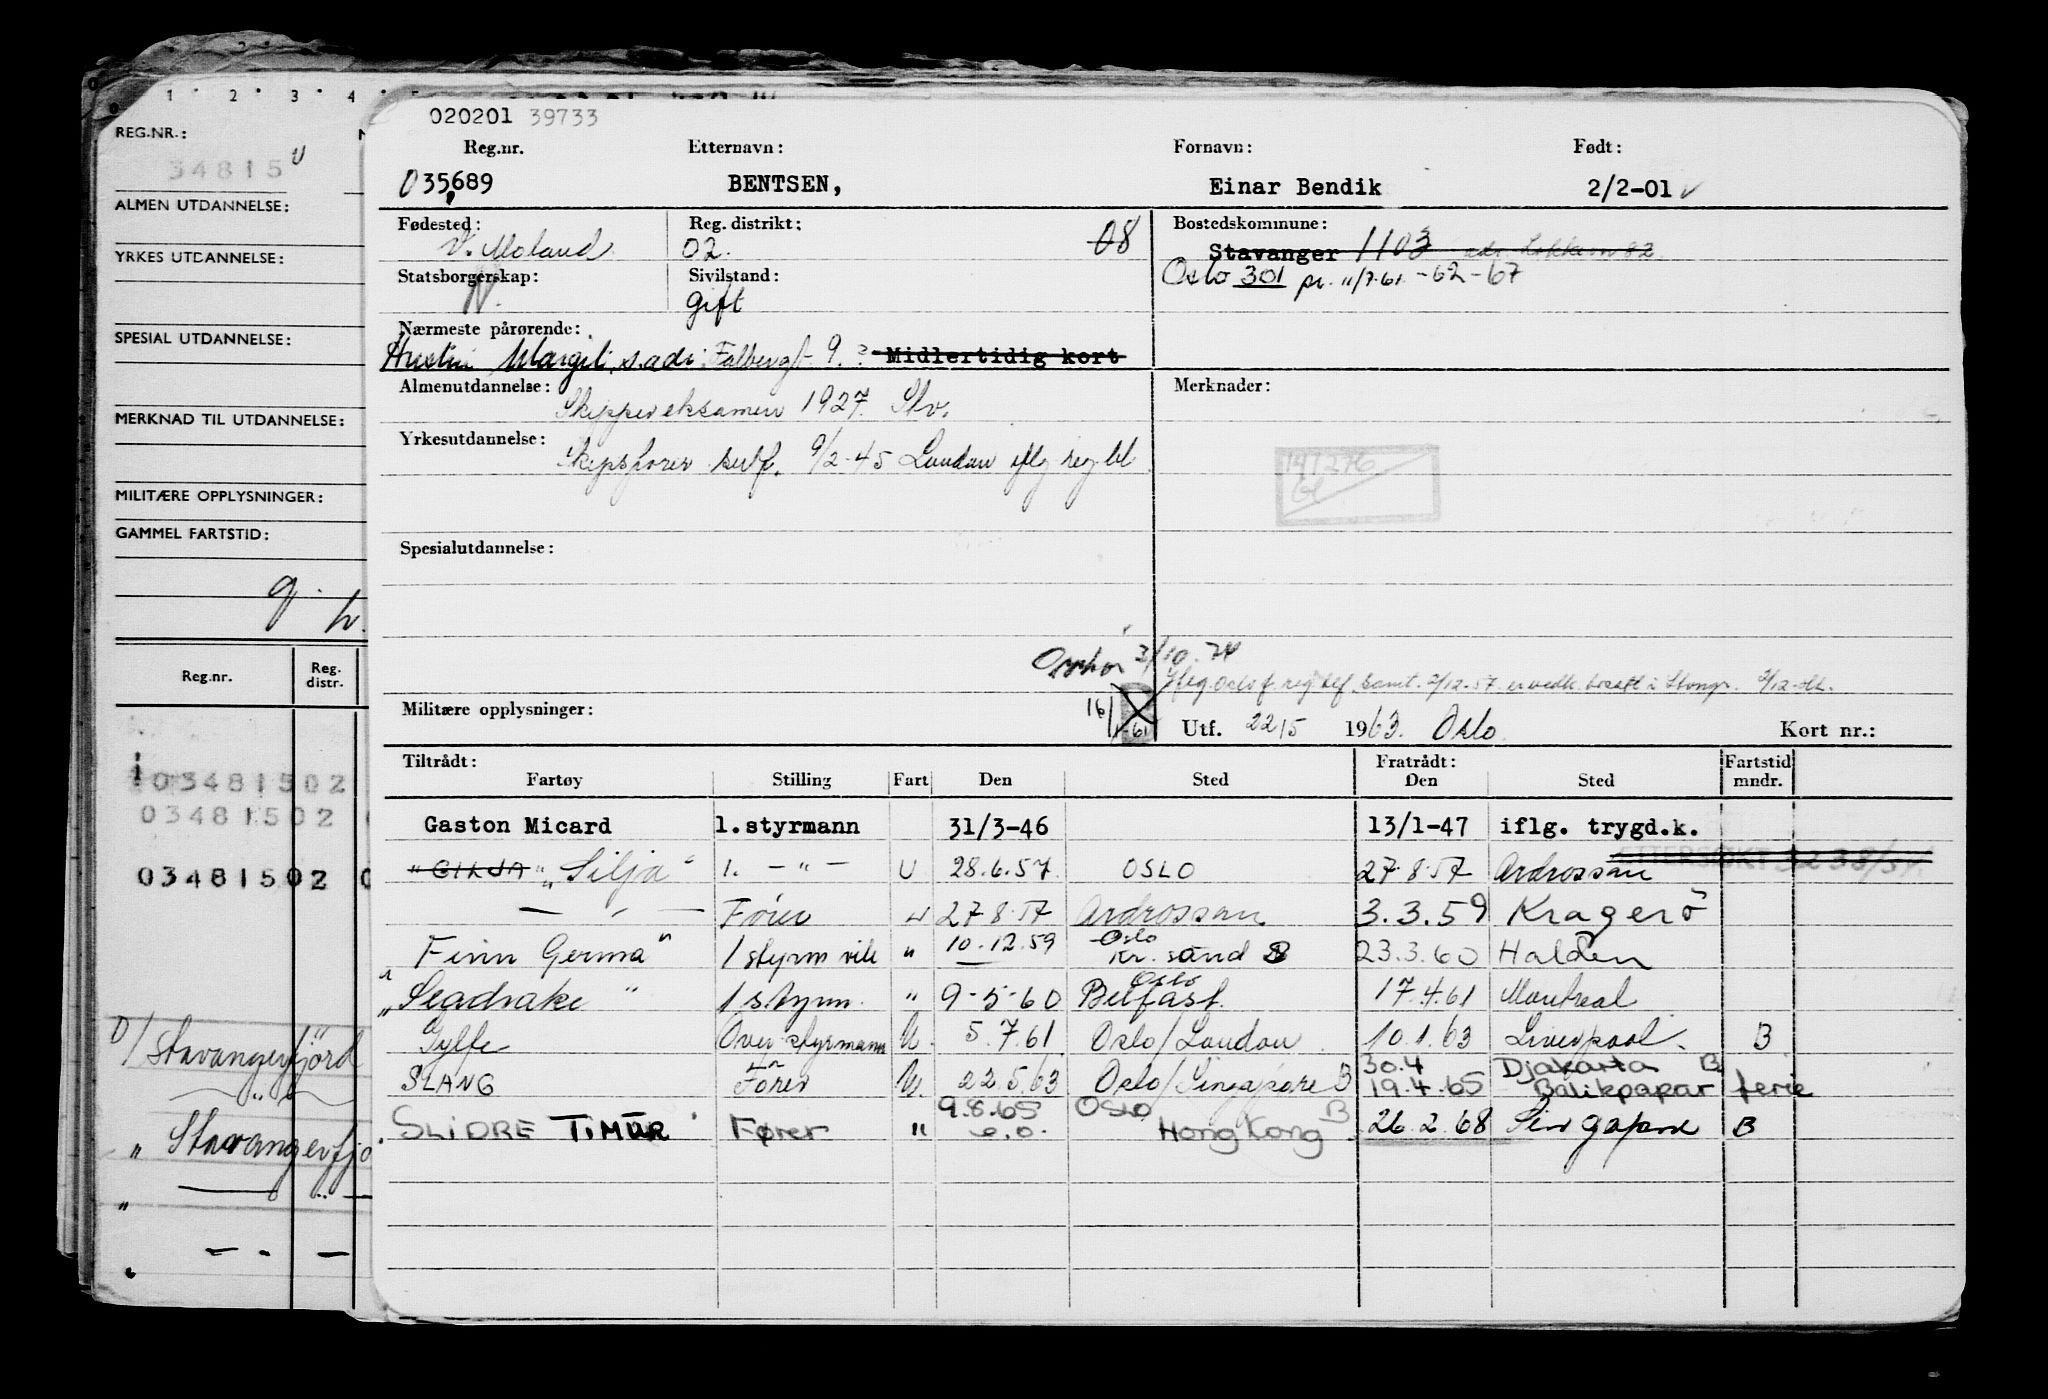 1 2 3 4
REG.NR.:
34815
ALMEN UTDANNELSE:
YRKES UTDANNELSE:
SPESIAL UTDANNELSE:
MERKNAD TIL UTDANNELSE:
MILITÆRE OPPLYSNINGER:
GAMMEL FARTSTID:
Reg.nr. Reg. distr.
03481502
03481502
03481502 0
D/ Stavangerfjord
— " —
" Stavangerfjo
020201 39733
Reg.nr. Etternavn: Fornavn: Født:
035689 BENTSEN, Einar Bendik 2/2-01
Fødested: Reg. distrikt: Bostedskommune:
V. Moland 02. 08 Stavanger 1103
Statsborgerskap: Sivilstand: Oslo 301 pr. 11/7-61 -62-67
N. gift
Nærmeste pårørende:
Hustru Margit, s.adr. 9. ? Midlertidig kort
Almenutdannelse: Merknader:
Skippereksamen 1927. Stv.
Yrkesutdannelse:
Skipsfører sertf. 9/2-45 London iflg reg.bl
147276
Spesialutdannelse:
Opphør 3/10.74
Iflg. Oslo samt. 2/12-57
Militære opplysninger: 16/1-61 Utf. 22/5 1963. Oslo. Kort nr.:
Tiltrådt: Fratrådt: Fartstid
Fartøy Stilling Fart Den Sted Den Sted mndr.
Gaston Micard 1.styrmann 31/3-46 13/1-47 iflg. trygd.k.
ETTERSØKT 3238/57
"GILJA" "Silja" 1. — " — U 28.6.57 OSLO 27.8.57 Ardrossan
— " — Fører " 27.8.57 Ardrossan 3.3.59 Kragerø
Finn Germa" 1 styrm vik " 10.12.59 Oslo Kr. sand S 23.3.60 Halden
"Seadrake" 1 styrm. " 9-5-60 Oslo Belfast. 17.4.61 Montreal
Gylfe Overstyrmann U. 5.7.61 Oslo/London 10.1.63 Liverpool. B
30.4 Djakarta B
SLANG Fører U. 22.5.63 Oslo/Singapore B 19.4.65 Balikpapar ferie
9.8.65 OSLO
SLIDRE TIMUR Fører " e.o. Hong Kong B 26.2.68 Singapore B